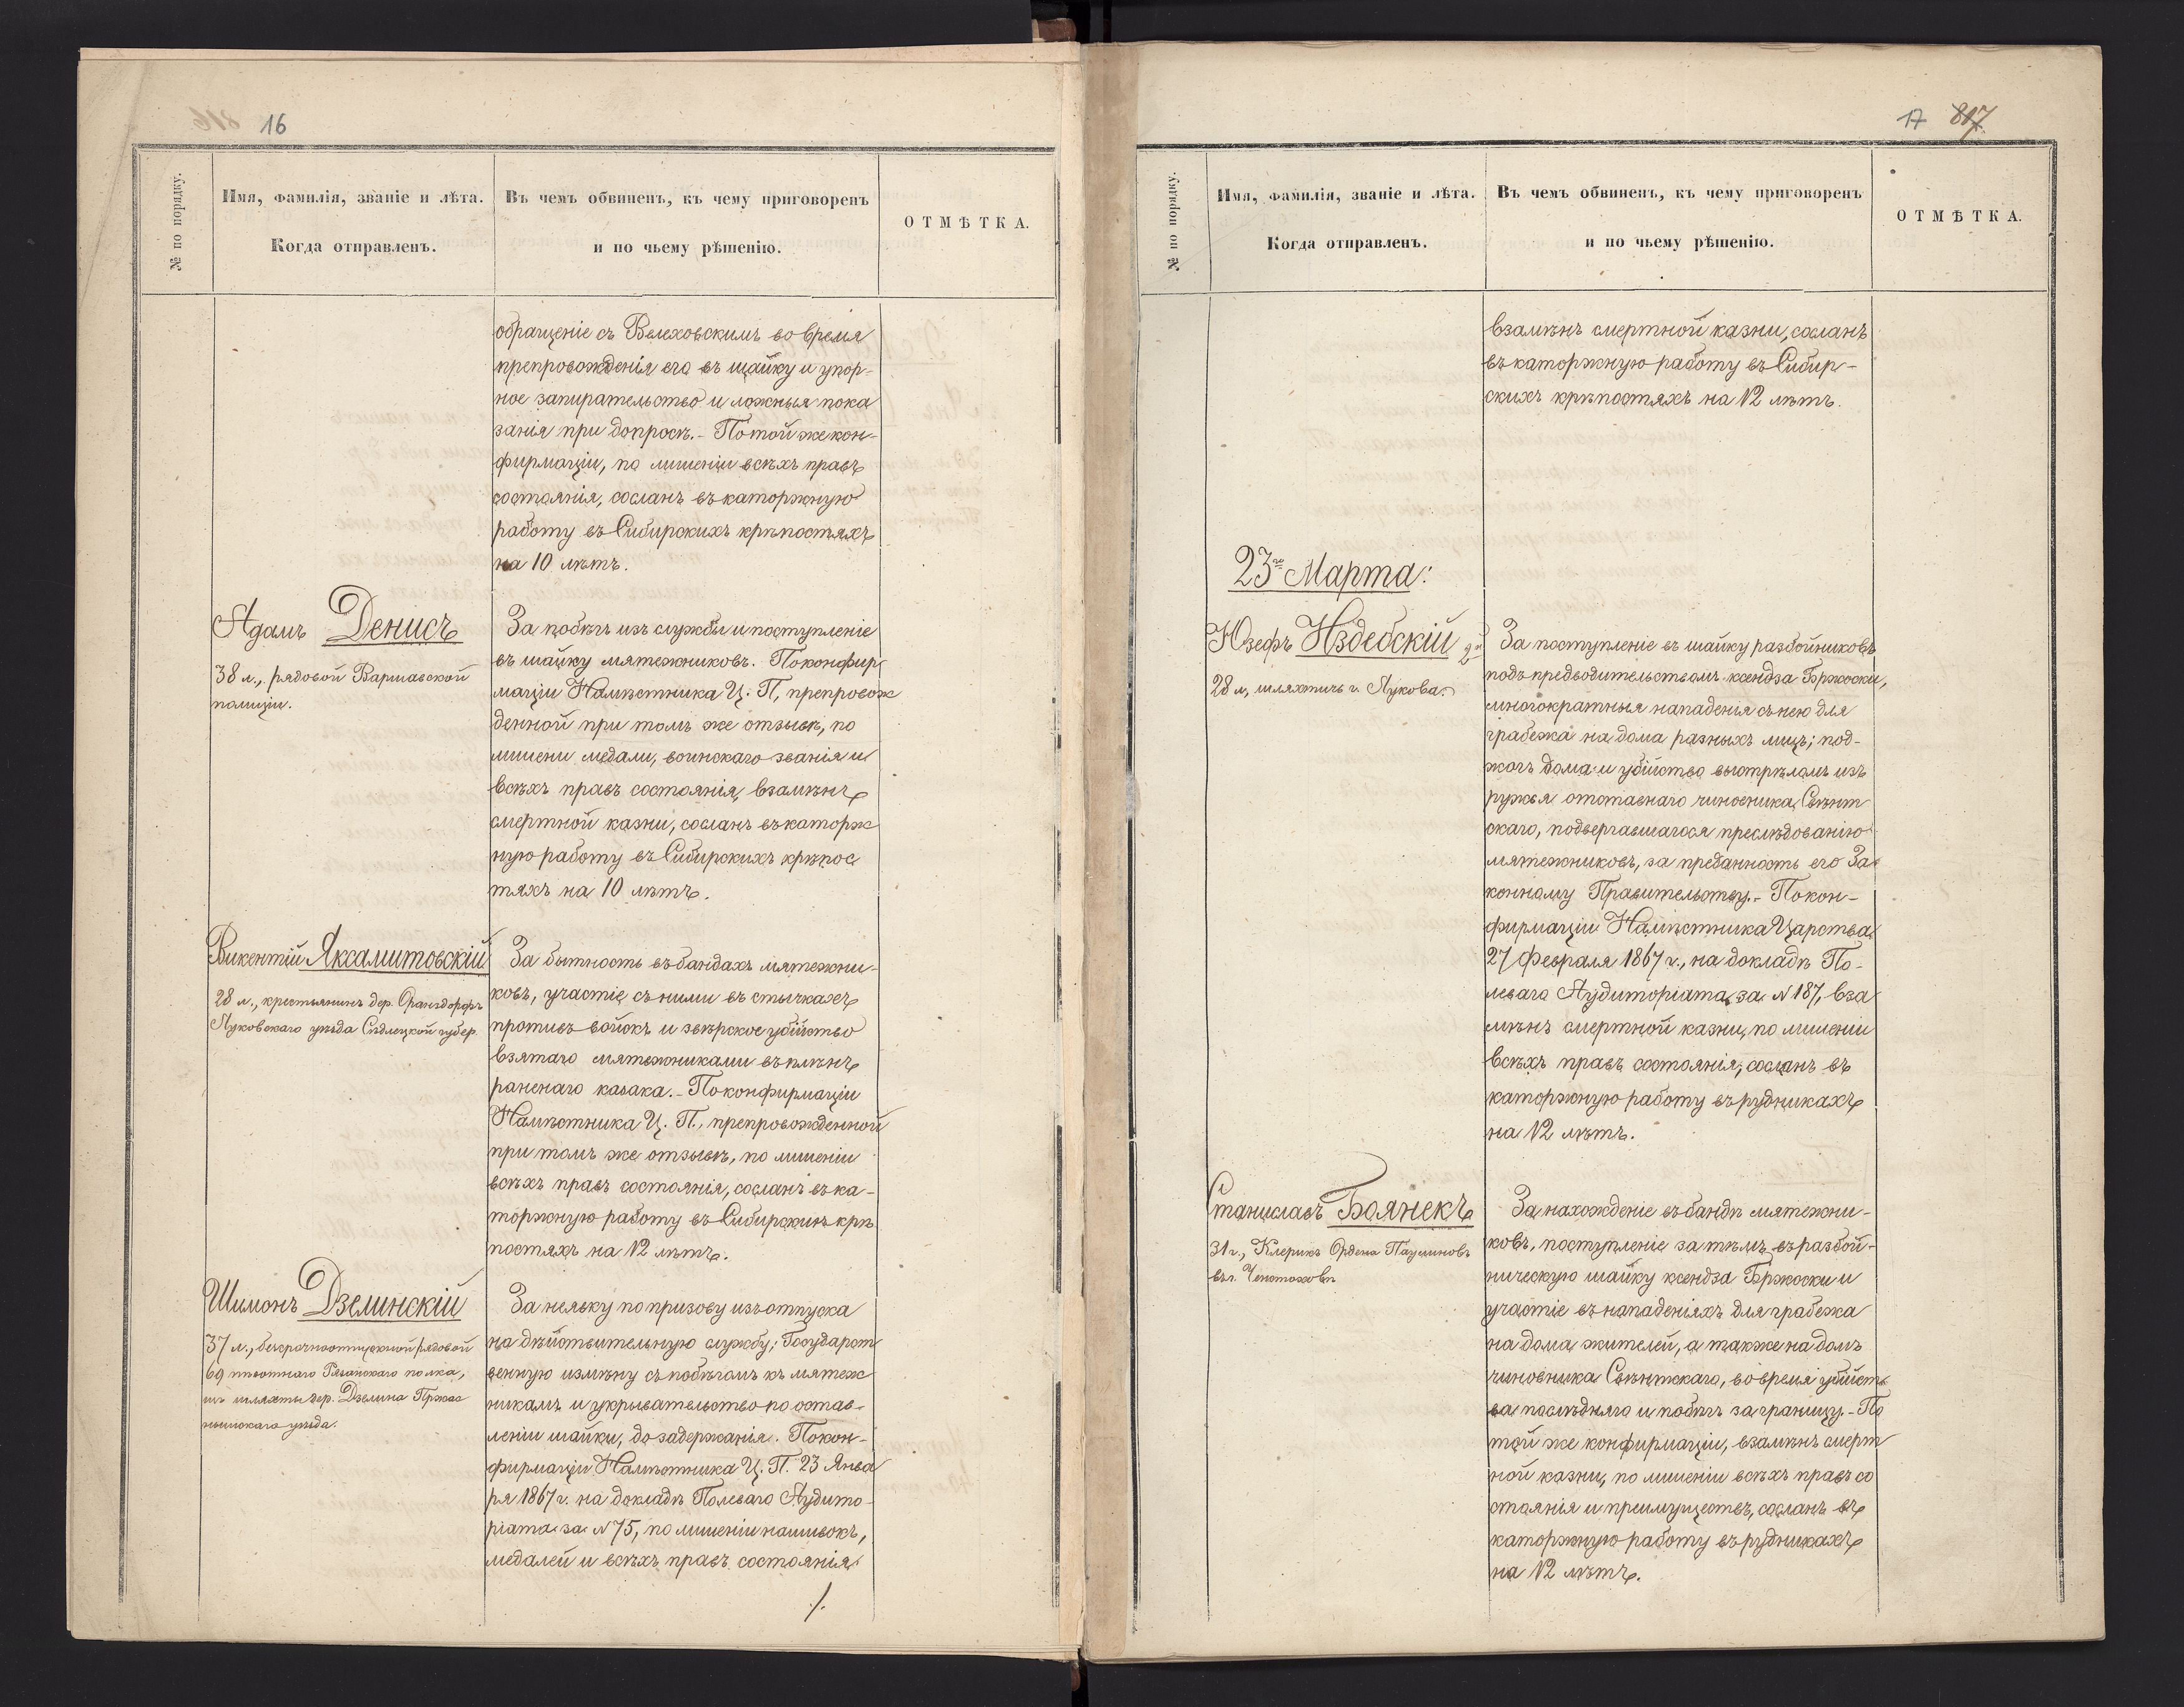 16
№ по порядку.
Имя, фамилія, званіе и лѣта.
Когда отправленъ.
Въ чемъ обвиненъ, къ чему приговоренъ
и по чьему рѣшенію.
ОТМѢТКА.
обращеніе съ Велеховскимъ во время
препровожденія его въ шайку и упор-
ное запирательство и ложныя пока
занія при допросѣ. - По той же кон-
фирмаціи, по лишеніи всѣхъ правъ
состоянія, сосланъ въ каторжную
работу въ Сибирскихъ крѣпостяхъ
на 10 лѣтъ.
Адамъ Денисъ
38 л., рядовой Варшавской
полиціи.
За побѣгъ изъ службы и поступленіе
въ шайку мятежниковъ. По конфир
маціи Намѣстника Ц. П., препровож
денной при томъ же отзывѣ, по
лишени медали, воинскаго званія и
всѣхъ правъ состоянія, взамѣнъ
смертной казни, сосланъ въ каторж
ную работу въ Сибирскихъ крѣпос
тяхъ на 10 лѣтъ.
Викентій Аксамитовскій
28 л., крестьянинъ дер.
Луковскаго уѣзда Сѣдлецкой губер.
За бытность въ бандахъ мятежни-
ковъ, участіе съ ними въ стычкахъ
противъ войскъ и звѣрское убійство
взятаго мятежниками въ плѣнъ
раненаго казака. - По конфирмаціи
Намѣстника Ц. П., препровожденной
при томъ же отзывѣ, по лишеніи
всѣхъ правъ состоянія, сосланъ въ ка-
торжную работу въ Сибирскихъ крѣ
постяхъ на 12 лѣтъ.
Шимонъ Дзелинскій
37 л., безсрочноотпускной рядовой
69 пѣхотнаго Рязанскаго полка,
изъ шляхты дер. Дзелина Пржас
нышскаго уѣзда.
За неявку по призову изъ отпуска
на дѣйствительную службу; Государст
венную измѣну съ побѣгомъ къ мятеж
никамъ и укрывательство по остав-
леніи шайки, до задержанія. По кон-
фирмаціи Намѣстника Ц. П. 23 Янва
ря 1867 г. на докладѣ Полеваго Аудито-
ріата за № 75, по лишеніи нашивокъ,
медалей и всѣхъ правъ состоянія
./.
17 817
№ по порядку.
Имя, фамилія, званіе и лѣта.
Когда отправленъ.
Въ чемъ обвиненъ, къ чему приговоренъ
и по чьему рѣшенію.
ОТМѢТКА.
взамѣнъ смертной казни, сосланъ
въ каторжную работу въ Сибир-
скихъ крѣпостяхъ на 12 лѣтъ.
23го Марта:
Юзефъ Издебскій 2й
28 л., шляхтичъ г. Лукова.
За поступленіе въ шайку разбойниковъ
подъ предводительствомъ ксендза Бржоски,
многократныя нападенія съ нею для
грабежа на дома разныхъ лицъ; под-
жогъ дома и убійство выстрѣломъ изъ
ружья отставнаго чиновника Свѣнт
скаго, подвергавшагося преслѣдованію
мятежниковъ, за преданность его За
конному Правительству. - По кон-
фирмаціи Намѣстника Царства
27 Февраля 1867 г., на докладѣ По-
леваго Аудиторіата за № 187, вза
мѣнъ смертной казни, по лишеніи
всѣхъ правъ состоянія, сосланъ въ
каторжную работу въ рудникахъ
на 12 лѣтъ.
Станиславъ Боянекъ
31 г., Клерикъ Ордена Паулиновъ
въ г. Ченстоховѣ
За нахожденіе въ бандѣ мятежни-
ковъ, поступленіе за тѣмъ въ разбой-
ническую шайку ксендза Бржоски и
участіе въ нападеніяхъ для грабежа
на дома жителей, а также на домъ
чиновника Свѣнтскаго, во время убійст
ва послѣдняго и побѣгъ за границу. - По
той же конфирмаціи, взамѣнъ смерт
ной казни, по лишеніи всѣхъ правъ со
стоянія и преимуществъ, сосланъ въ
каторжную работу въ рудникахъ
на 12 лѣтъ.